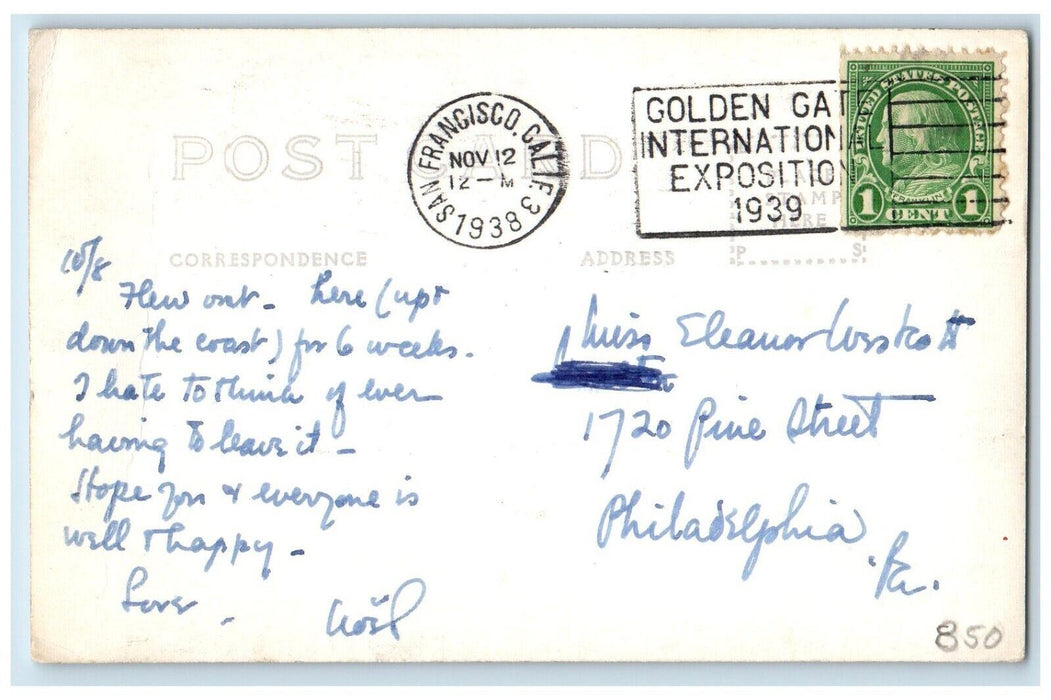 POST CARD
SAN FRANCISCO, CALIF. 3
NOV 12
12 - M
1938
GOLDEN GAT
INTERNATIONAL
EXPOSITION
1939
UNITED STATES POSTAGE
FRANKLIN
1 CENT 1
PLACE
STAMP
HERE
P S
CORRESPONDENCE
ADDRESS
Flew out - here (up &
down the coast) for 6 weeks.
I hate to think of ever
having to leave it -
Hope you & everyone is
well & happy -
Love -
Noël
Miss Eleanor
1720 Pine Street
Philadelphia
Pa.
850